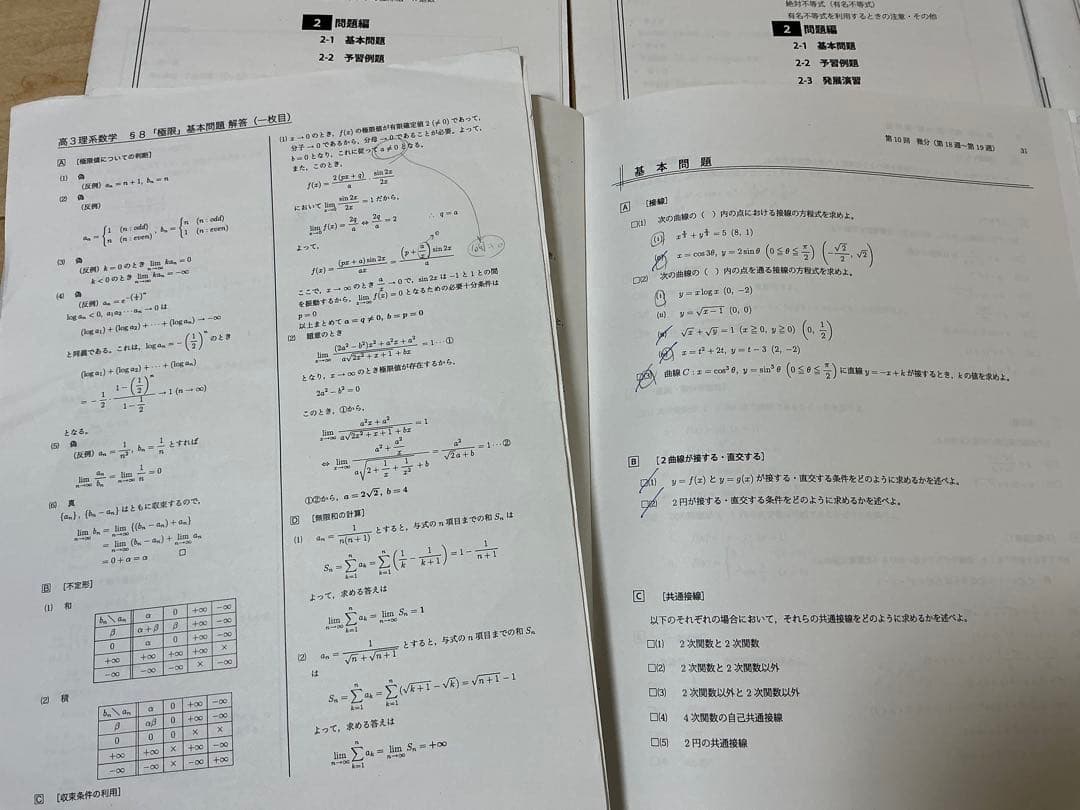 2 問題編
2-1 基本問題
2-2 予習例題
絶対不等式（有名不等式）
有名不等式を利用するときの注意・その他
2 問題編
2-1 基本問題
2-2 予習例題
2-3 発展演習
高3理系数学 §8「極限」基本問題 解答（一枚目）
A [極限値についての判断]
(1) 偽
(反例) aₙ = n+1, bₙ = n
(2) 偽
(反例)
aₙ = { 1 (n : odd) n (n : even) , bₙ = { n (n : odd) 1 (n : even)
(3) 偽
(反例) k=0 のとき lim_{n→∞} kaₙ = 0
k<0 のとき lim_{n→∞} kaₙ = −∞
(4) 偽
(反例) aₙ = e^{−(1/2)ⁿ}
log aₙ < 0, a₁a₂⋯aₙ → 0 は
(log a₁) + (log a₂) + ⋯ + (log aₙ) → −∞
と同義である。これは、log aₙ = −(1/2)ⁿ のとき
(log a₁) + (log a₂) + ⋯ + (log aₙ)
= −1/2 · (1−(1/2)ⁿ)/(1−1/2) → −1 (n→∞)
となる。
(5) 偽
(反例) aₙ = 1/n², bₙ = 1/n とすれば
lim_{n→∞} aₙ/bₙ = lim_{n→∞} 1/n = 0
(6) 真
{aₙ}, {bₙ − aₙ} はともに収束するので,
lim_{n→∞} bₙ = lim_{n→∞} {(bₙ − aₙ) + aₙ}
= lim_{n→∞} (bₙ − aₙ) + lim_{n→∞} aₙ
= 0 + α = α □
B [不定形]
(1) 和
bₙ＼aₙ α 0 +∞ −∞
β α+β β +∞ −∞
0 α 0 +∞ −∞
+∞ +∞ +∞ +∞ ×
−∞ −∞ −∞ × −∞
(2) 積
bₙ＼aₙ α 0 +∞ −∞
β αβ 0 +∞ −∞
0 0 0 × ×
+∞ +∞ × +∞ −∞
−∞ −∞ × −∞ +∞
C [収束条件の利用]
(1) x→0 のとき, f(x) の極限値が有限確定値 2 (≠0) であって,
分子→0 であるから, 分母→0 であることが必要。よって,
b=0 となり, これに従って a≠0 となる。
また, このとき,
f(x) = 2(px+q)/a · sin 2x/2x
において lim_{x→0} sin 2x/2x = 1 だから,
lim_{x→0} f(x) = 2q/a ⇔ 2q/a = 2 ∴ q = a
よって,
f(x) = (px+a) sin 2x/ax = (p + a/x) sin 2x/a
0
ここで, x→∞ のとき a/x → 0 で, sin 2x は −1 と 1 との間
を振動するから, lim_{x→∞} f(x) = 0 となるための必要十分条件は
p = 0
以上まとめて a = q ≠ 0, b = p = 0
(2) 題意のとき
lim_{x→∞} ((2a²−b²)x²+a²x+a²)/(a√(2x²+x+1)+bx) = 1 ⋯①
となり, x→∞ のとき極限値が存在するから,
2a² − b² = 0
このとき, ①から,
lim_{x→∞} (a²x+a²)/(a√(2x²+x+1)+bx) = 1
⇔ lim_{x→∞} (a²+a²/x)/(a√(2+1/x+1/x²)+b) = a²/(√2a+b) = 1 ⋯②
①②から, a = 2√2, b = 4
D [無限和の計算]
(1) aₙ = 1/(n(n+1)) とすると, 与式の n 項目までの和 Sₙ は
Sₙ = Σ_{k=1}^{n} aₖ = Σ_{k=1}^{n} (1/k − 1/(k+1)) = 1 − 1/(n+1)
よって, 求める答えは
lim_{n→∞} Σ_{k=1}^{n} aₖ = lim_{n→∞} Sₙ = 1
(2) aₙ = 1/(√n+√(n+1)) とすると, 与式の n 項目までの和 Sₙ
は
Sₙ = Σ_{k=1}^{n} aₖ = Σ_{k=1}^{n} (√(k+1) − √k) = √(n+1) − 1
よって, 求める答えは
lim_{n→∞} Σ_{k=1}^{n} aₖ = lim_{n→∞} Sₙ = +∞
第10回 微分（第18週～第19週） 31
基本問題
A [接線]
□(1) 次の曲線の（ ）内の点における接線の方程式を求めよ。
(i) x^{2/3} + y^{2/3} = 5 (8, 1)
(ii) x = cos 3θ, y = 2 sin θ (0 ≦ θ ≦ π/2) (−√2/2, √2)
□(2) 次の曲線の（ ）内の点を通る接線の方程式を求めよ。
(i) y = x log x (0, −2)
(ii) y = √(x−1) (0, 0)
√x + √y = 1 (x ≧ 0, y ≧ 0) (0, 1/2)
x = t² + 2t, y = t − 3 (2, −2)
□(3) 曲線 C : x = cos³θ, y = sin³θ (0 ≦ θ ≦ π/2) に直線 y = −x + k が接するとき, k の値を求めよ。
B [2曲線が接する・直交する]
□(1) y = f(x) と y = g(x) が接する・直交する条件をどのように求めるかを述べよ。
□(2) 2円が接する・直交する条件をどのように求めるかを述べよ。
C [共通接線]
以下のそれぞれの場合において, それらの共通接線をどのように求めるかを述べよ。
□(1) 2次関数と2次関数
□(2) 2次関数と2次関数以外
□(3) 2次関数以外と2次関数以外
□(4) 4次関数の自己共通接線
□(5) 2円の共通接線